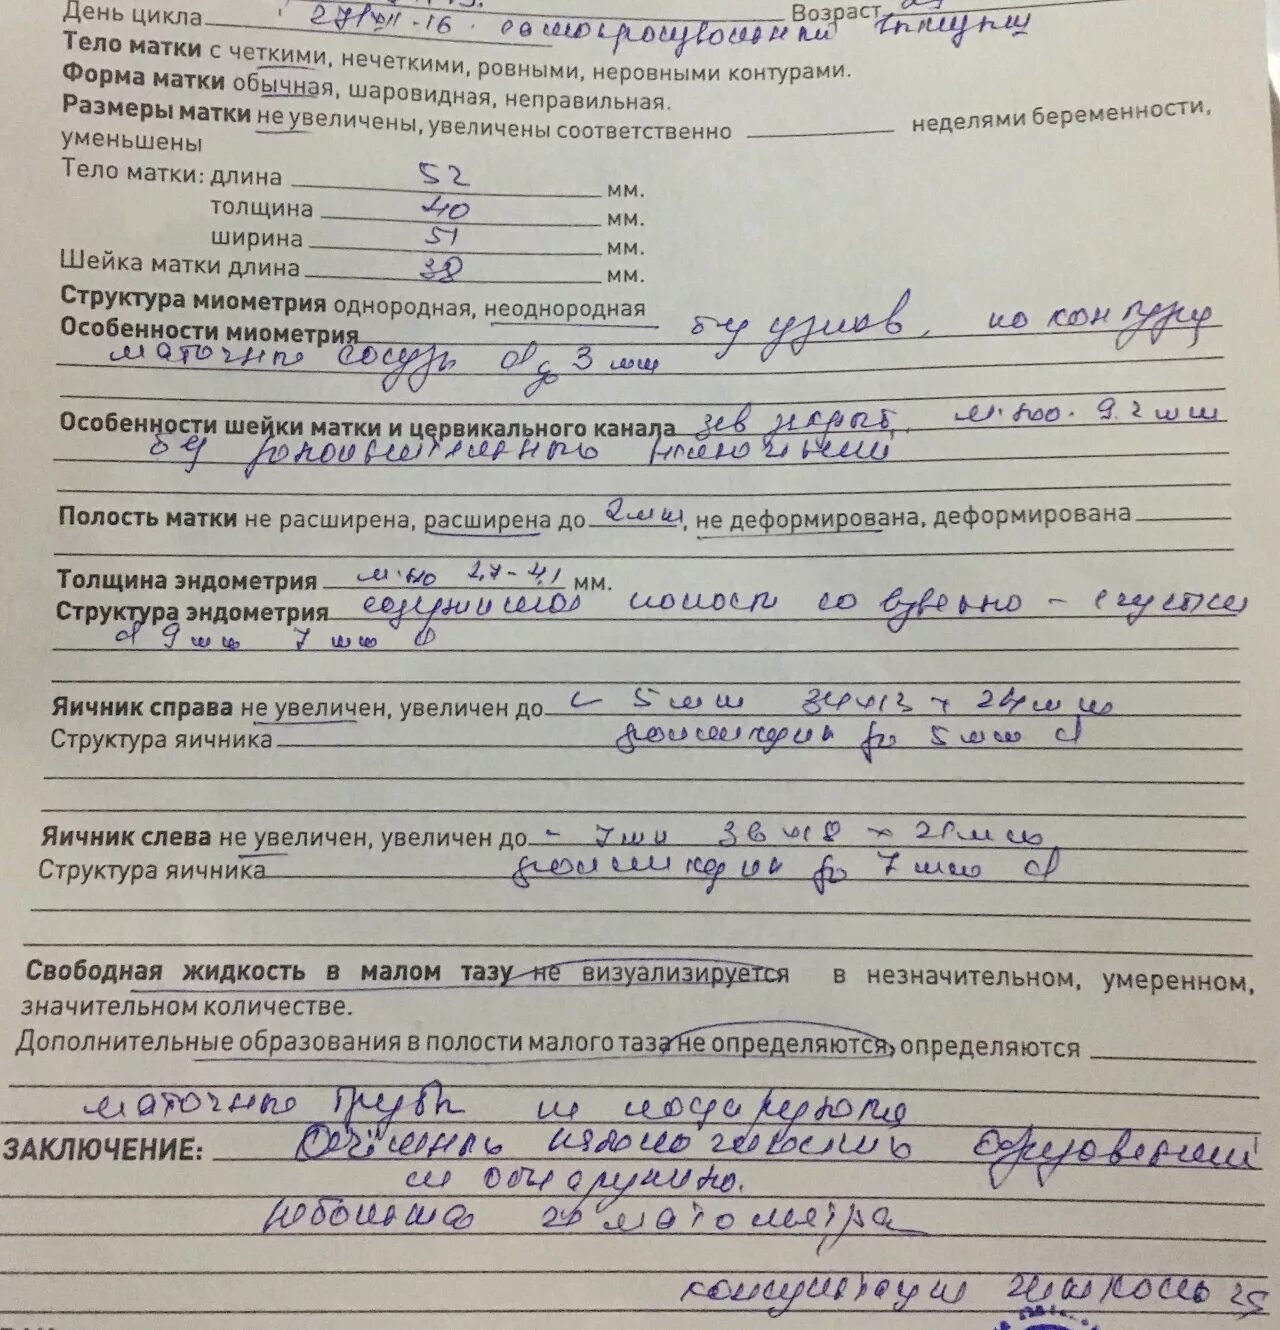 День цикла 27/XII-16. самопроизвольный
Возраст
Тело матки с четкими, нечеткими, ровными, неровными контурами.
Форма матки обычная, шаровидная, неправильная.
Размеры матки не увеличены, увеличены соответственно неделями беременности,
уменьшены
Тело матки: длина 52 мм.
толщина 40 мм.
ширина 51 мм.
Шейка матки длина 38 мм.
Структура миометрия однородная, неоднородная
Особенности миометрия б/у узлов, по контуру
маточные сосуды d до 3 мм
Особенности шейки матки и цервикального канала зев закрыт, 9.2 мм
Полость матки не расширена, расширена до 2 мм, не деформирована, деформирована
Толщина эндометрия м-эхо 2,7-4,1 мм.
Структура эндометрия содержимое полости со взвесью - сгустки
d 9 мм 7 мм
Яичник справа не увеличен, увеличен до 5 мм 24 мм
Структура яичника фолликулы до 5 мм d
Яичник слева не увеличен, увеличен до - 7 мм
Структура яичника фолликулы до 7 мм d
Свободная жидкость в малом тазу не визуализируется в незначительном, умеренном,
значительном количестве.
Дополнительные образования в полости малого таза не определяются, определяются
маточные трубы не лоцируются
ЗАКЛЮЧЕНИЕ: образований
не обнаружено.
Небольшая гематометра
консультация гинеколога